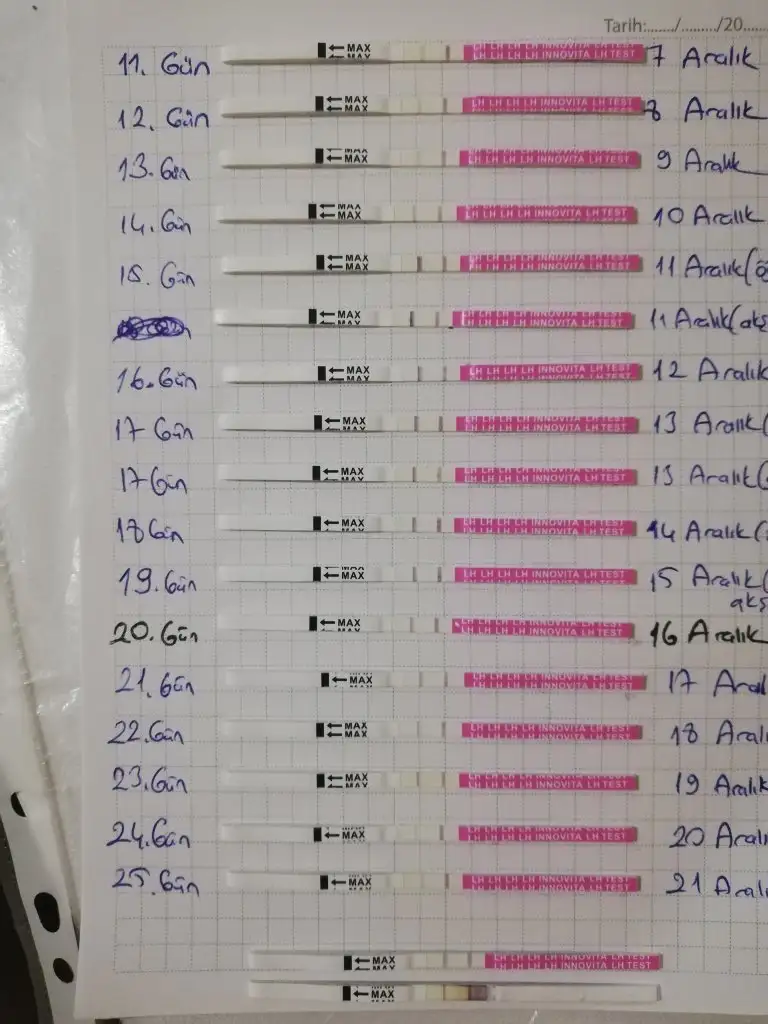 Tarih:......./........./20......
11. Gün MAX MAX LH LH LH LH INNOVITA LH TEST 7 Aralık
12. Gün MAX MAX LH LH LH LH INNOVITA LH TEST 8 Aralık
13. Gün MAX MAX LH LH LH LH INNOVITA LH TEST 9 Aralık
14. Gün MAX MAX LH LH LH LH INNOVITA LH TEST 10 Aralık
15. Gün MAX MAX LH LH LH LH INNOVITA LH TEST 11 Aralık(ö
MAX MAX LH LH LH LH INNOVITA LH TEST 11 Aralık(akş
16. Gün MAX MAX LH LH LH LH INNOVITA LH TEST 12 Aralık
17 Gün MAX MAX LH LH LH LH INNOVITA LH TEST 13 Aralık(
17 Gün MAX MAX LH LH LH LH INNOVITA LH TEST 13 Aralık(
18 Gün MAX MAX LH LH LH LH INNOVITA LH TEST 14 Aralık(
19. Gün MAX MAX LH LH LH LH INNOVITA LH TEST 15 Aralık(
akş
20. Gün MAX MAX LH LH LH LH INNOVITA LH TEST 16 Aralık
21. Gün MAX LH LH LH LH INNOVITA LH TEST 17 Aral
22. Gün MAX MAX LH LH LH LH INNOVITA LH TEST 18 Aralı
23. Gün MAX MAX LH LH LH LH INNOVITA LH TEST 19 Aralık
24. Gün MAX LH LH LH LH INNOVITA LH TEST 20 Aralı
25. Gün MAX LH LH LH LH INNOVITA LH TEST 21 Aralı
MAX MAX LH LH LH LH INNOVITA LH TEST
MAX